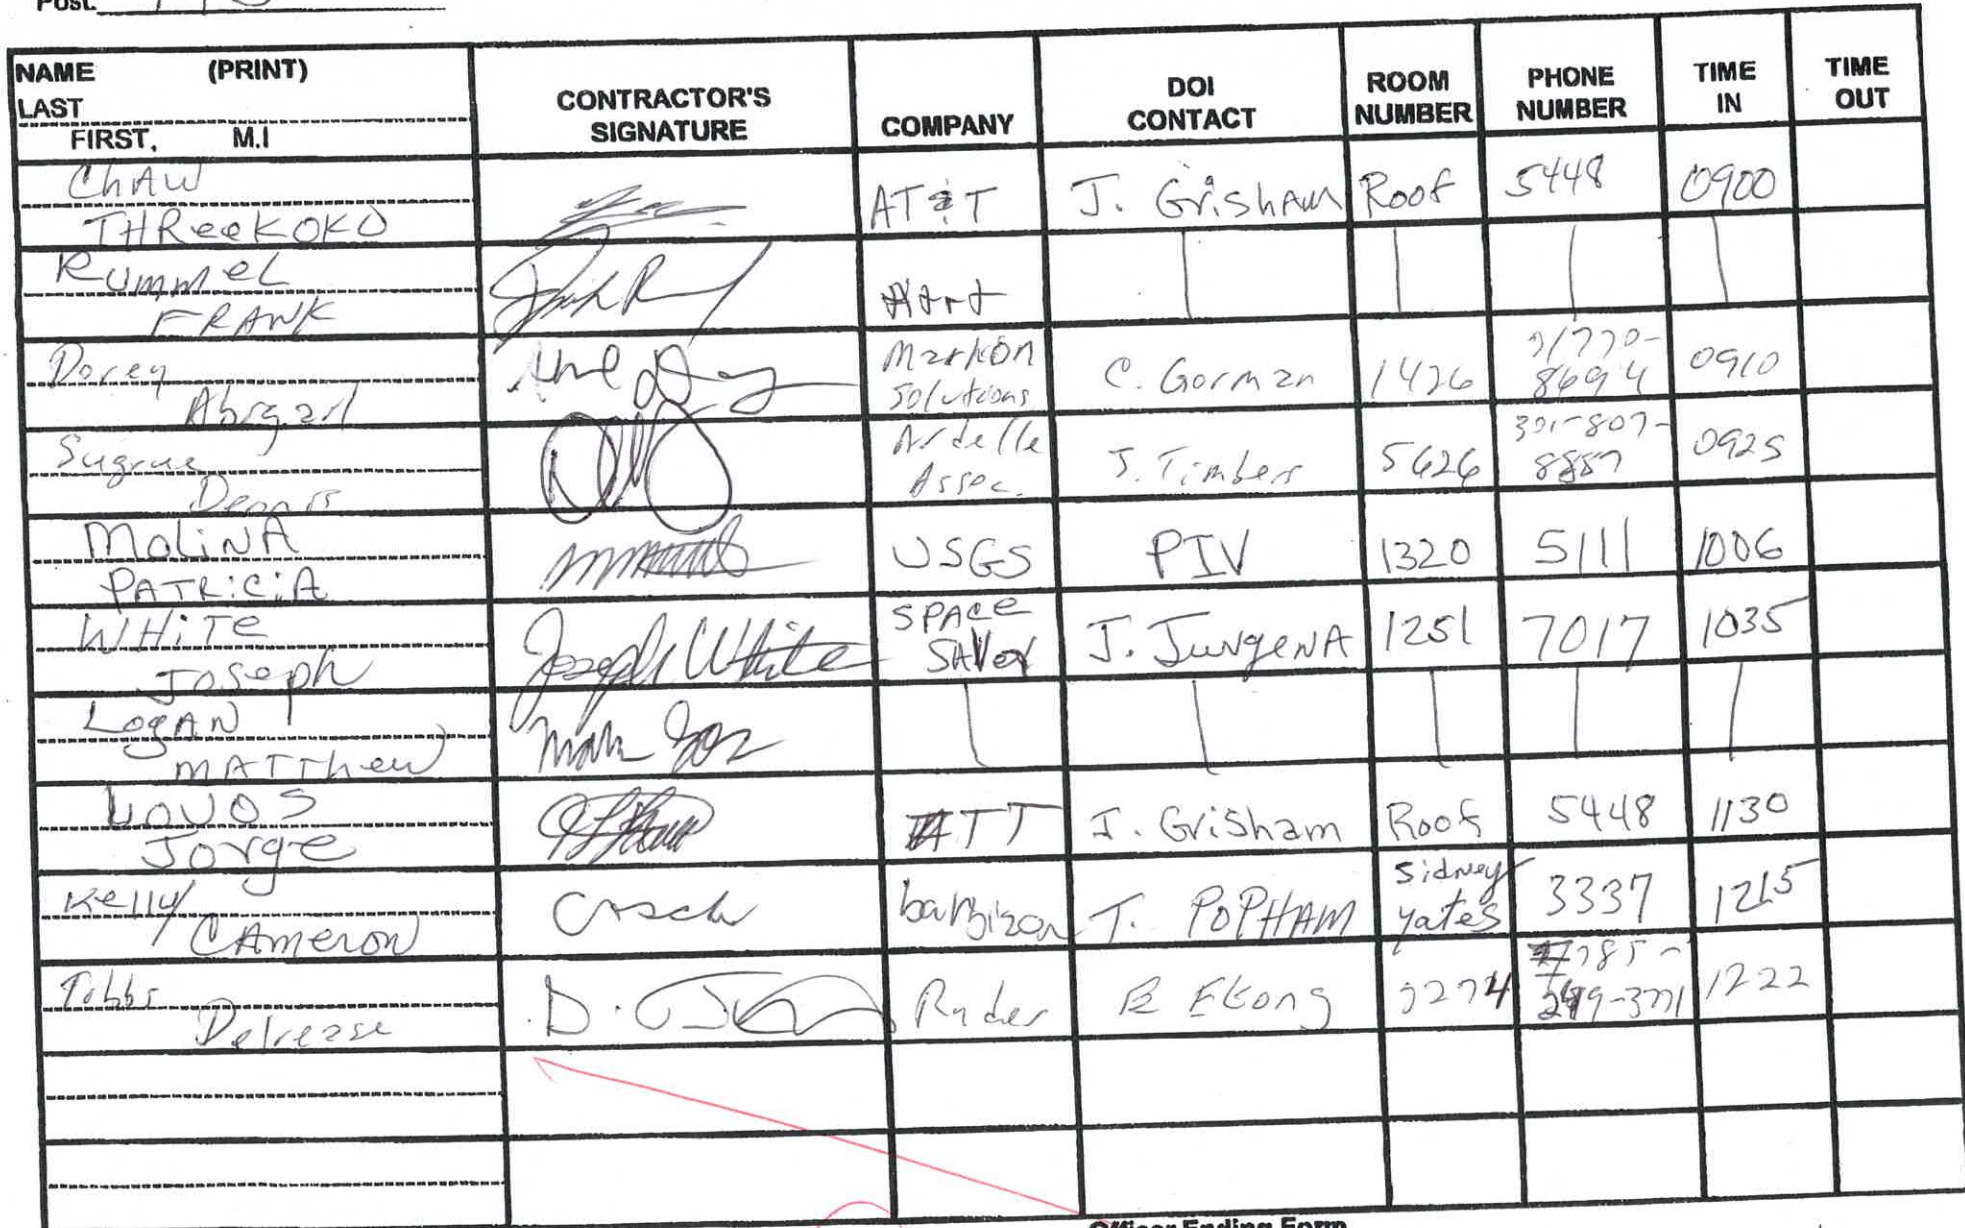 Post:
NAME (PRINT)
LAST
FIRST, M.I
CONTRACTOR'S SIGNATURE
COMPANY
DOI CONTACT
ROOM NUMBER
PHONE NUMBER
TIME IN
TIME OUT
ChAW
THReeKOKO
AT&T J. GrishAm Roof 5448 0900
RummeL
FRANK
Dorey
Abigail
Markon Solutions C. Gorman 1426 0910
Sugrue
Dennis
Ardelle Assoc. J. Timbers 5626 0925
MoLiNA
PATRiCiA
USGS PIV 1320 5111 1006
WHiTe
Joseph
Joseph White
SPACe SAVer J. JurgeNA 1251 7017 1035
LogAN
MATThew
Jorge
ATT J. GriSham Roof 5448 1130
Kelly
CAmeron
barbizon T. POPHAM Sidney Yates 3337 1215
Tibbs
Delrease
Ryder E Ekong 1222
Officer Ending Form